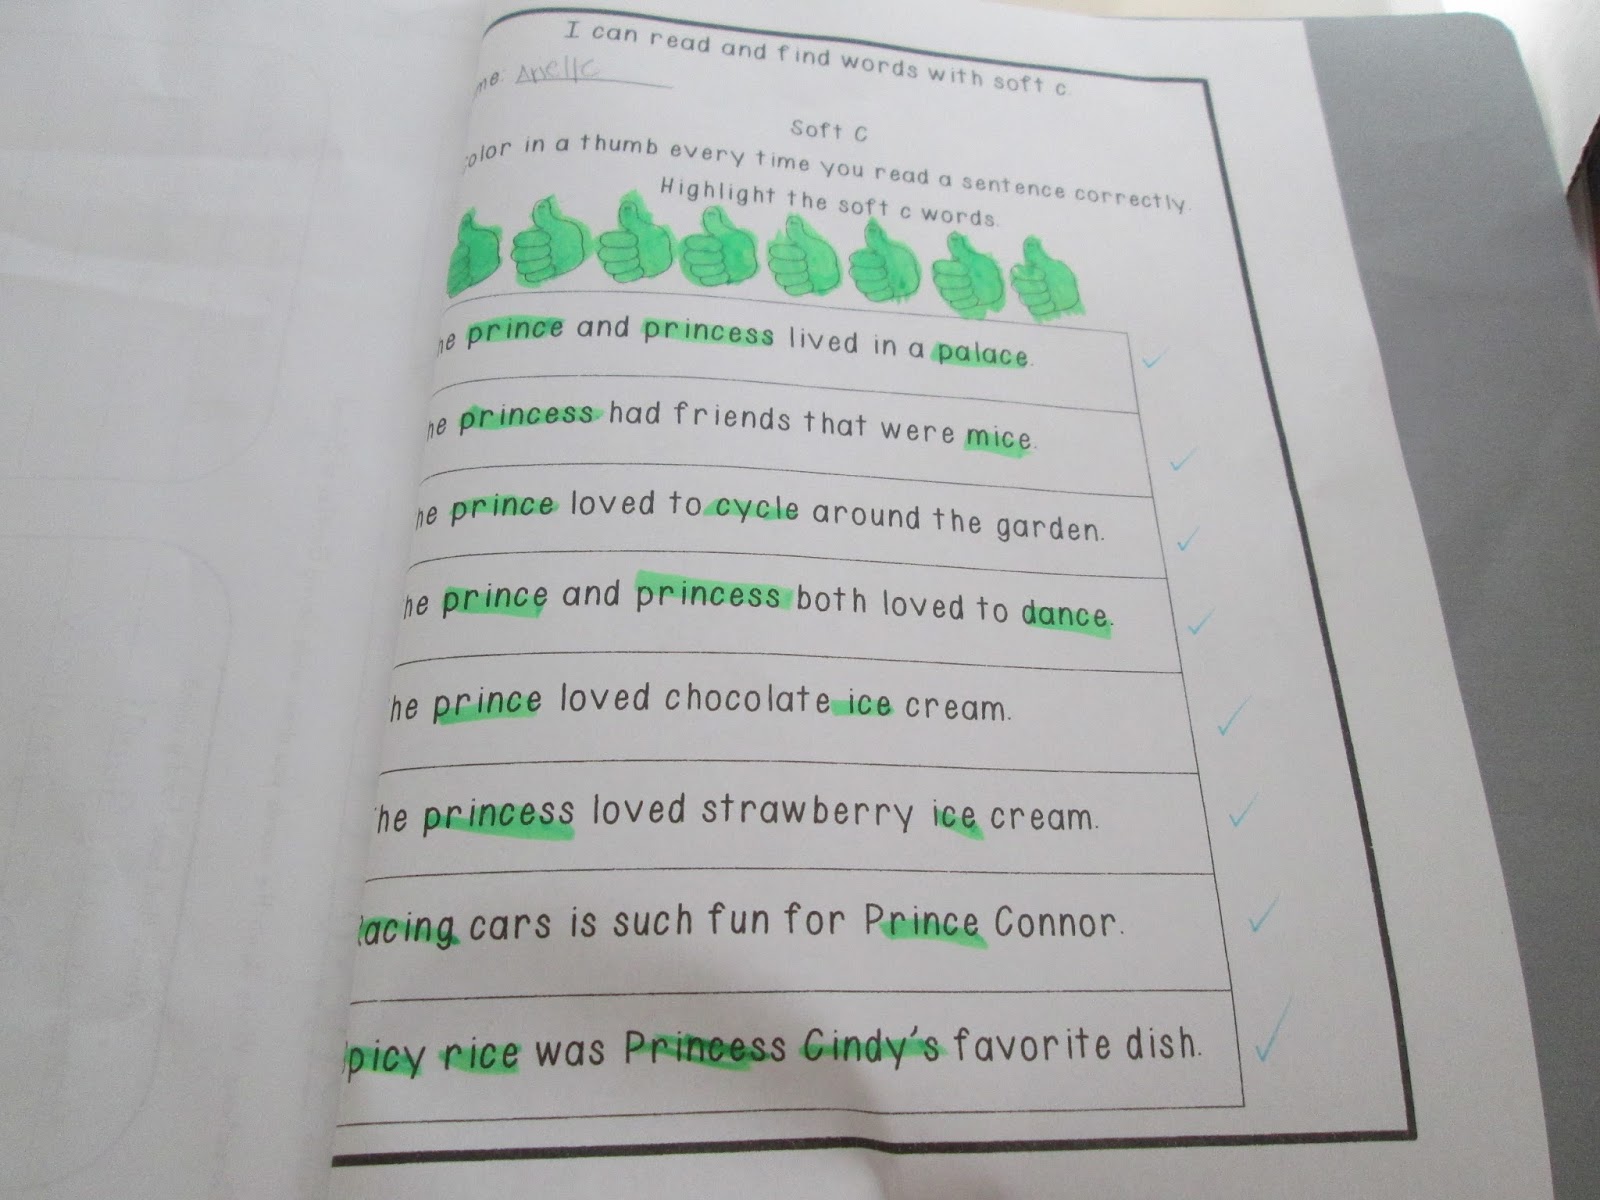 I can read and find words with soft c.
me:
Soft C
olor in a thumb every time you read a sentence correctly.
Highlight the soft c words.
he prince and princess lived in a palace.
he princess had friends that were mice.
he prince loved to cycle around the garden.
he prince and princess both loved to dance.
he prince loved chocolate ice cream.
he princess loved strawberry ice cream.
acing cars is such fun for Prince Connor.
picy rice was Princess Cindy's favorite dish.